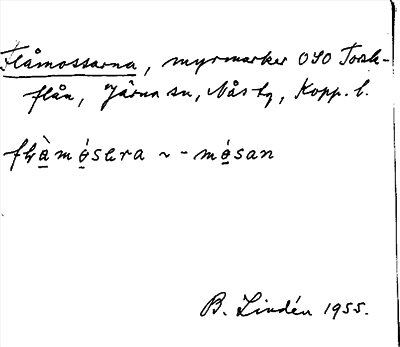 Flåmossarna, myrmarker OSO Torsk-
flån, Järna sn, Nås tg, Kopp. l.
flà̱mó̱sera ~ -mó̱san
B. Lindén 1955.